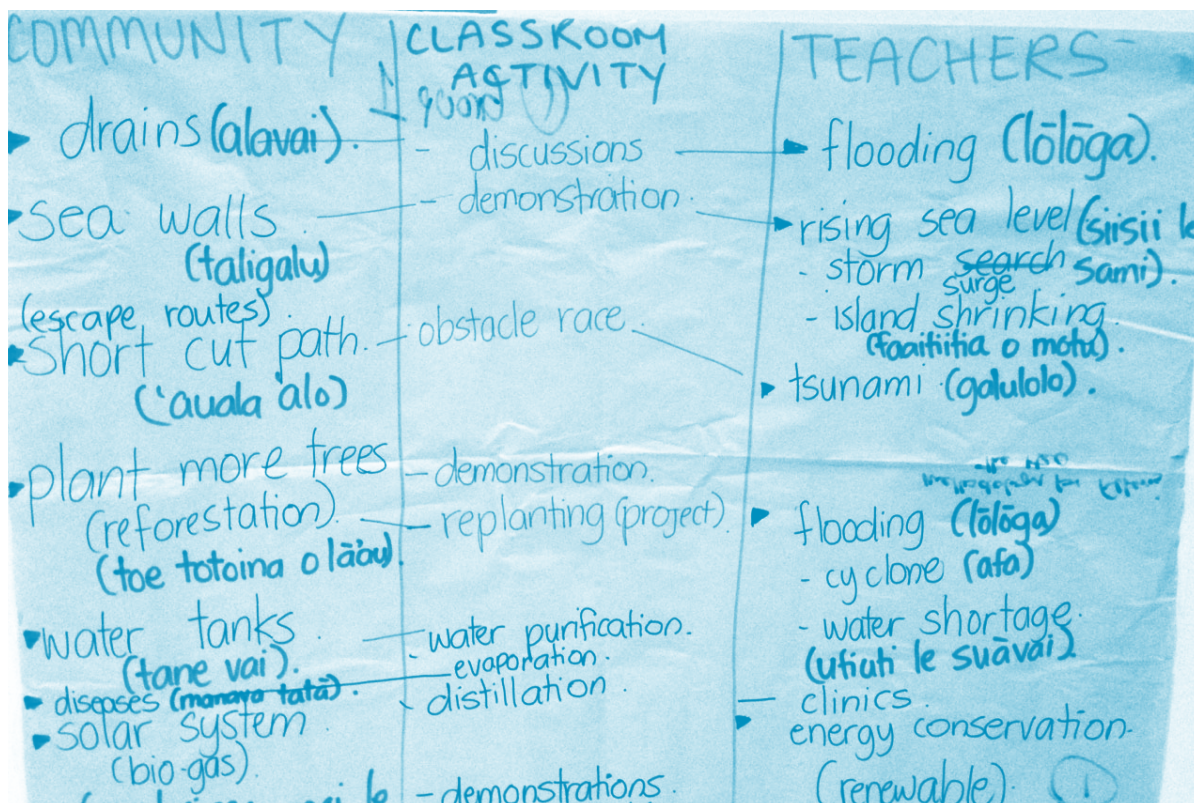 COMMUNITY
drains (alavai).
sea walls.
(taligalu)
(escape routes).
short cut path.
('auala 'alo)
plant more trees
(reforestation).
(toe totoina o lā'au).
water tanks.
(tane vai).
diseases (manava tatā).
solar system
(bio-gas).
CLASSROOM
ACTIVITY
- discussions
- demonstration.
- obstacle race.
- demonstration.
- replanting (project).
- water purification.
- evaporation.
- distillation.
- demonstrations.
TEACHERS
flooding (lōlōga).
rising sea level (siisii le
- storm search sami).
surge
- island shrinking.
(faaitiitia o motu).
tsunami (galulolo).
flooding (lōlōga)
- cyclone (afa)
- water shortage.
(utiuti le suāvai).
- clinics
energy conservation.
(renewable). 1